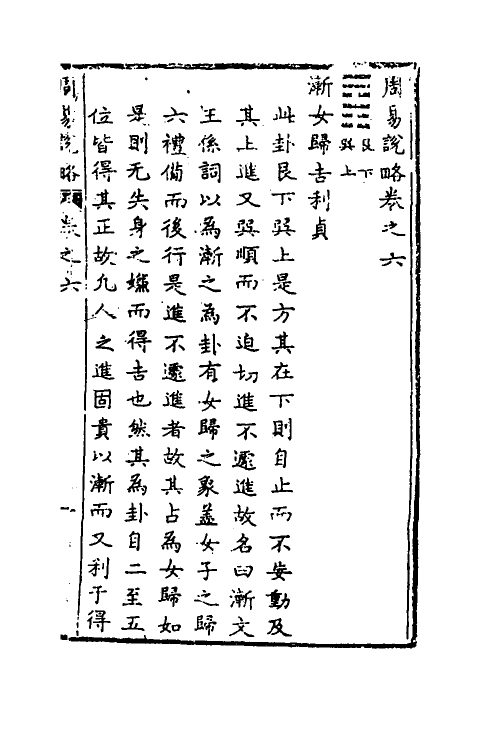 周易說略卷之六
艮下
巽上
漸女歸吉利貞
此卦艮下巽上是方其在下則自止而不妄動及
其上進又巽順而不迫切進不遽進故名曰漸文
王係詞以為漸之為卦有女歸之象蓋女子之歸
六禮備而後行是進不遽進者故其占為女歸如
是則无失身之嫌而得吉也然其為卦自二至五
位皆得其正故凡人之進固貴以漸而又利于得
周易說略 卷之六 一